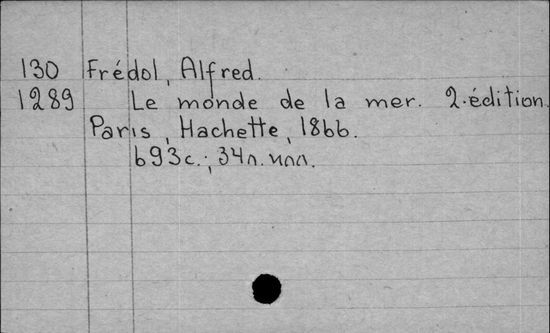 130 Frédol, Alfred.
1289 Le monde de la mer. 2.édition.
Paris, Hachette, 1866.
693c.; 34л. илл.